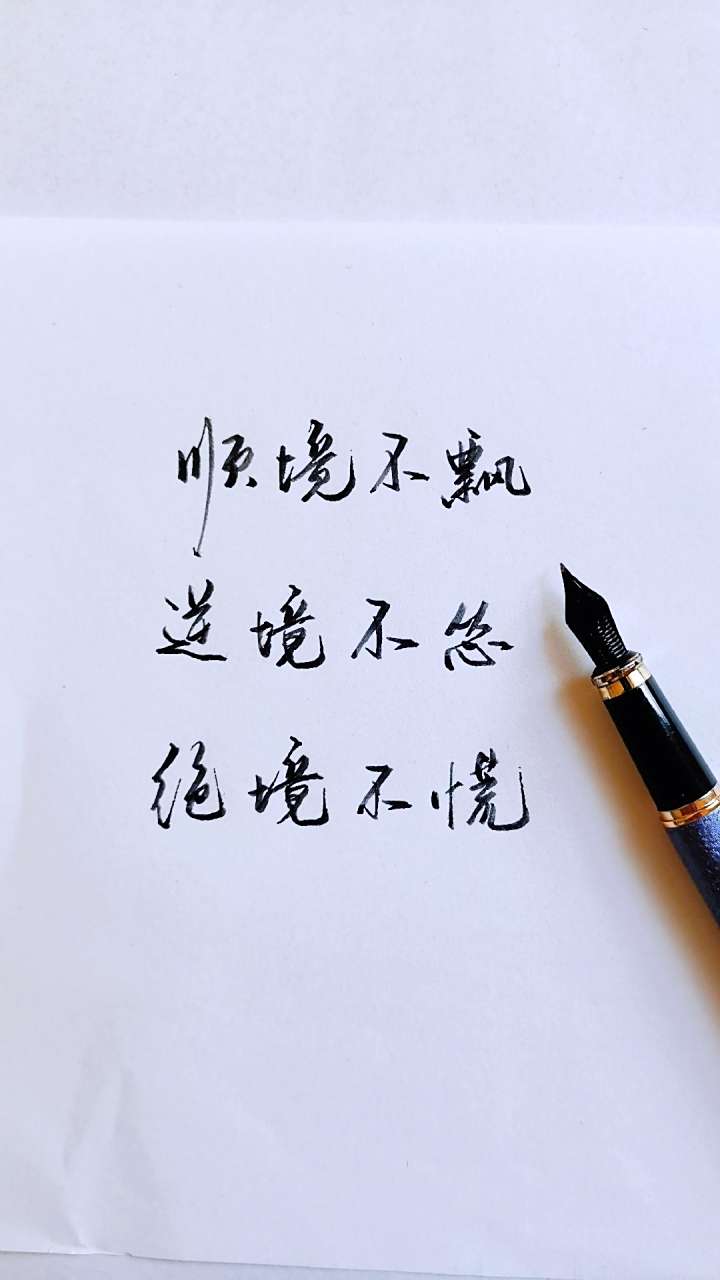 顺境不飘
逆境不怂
绝境不慌